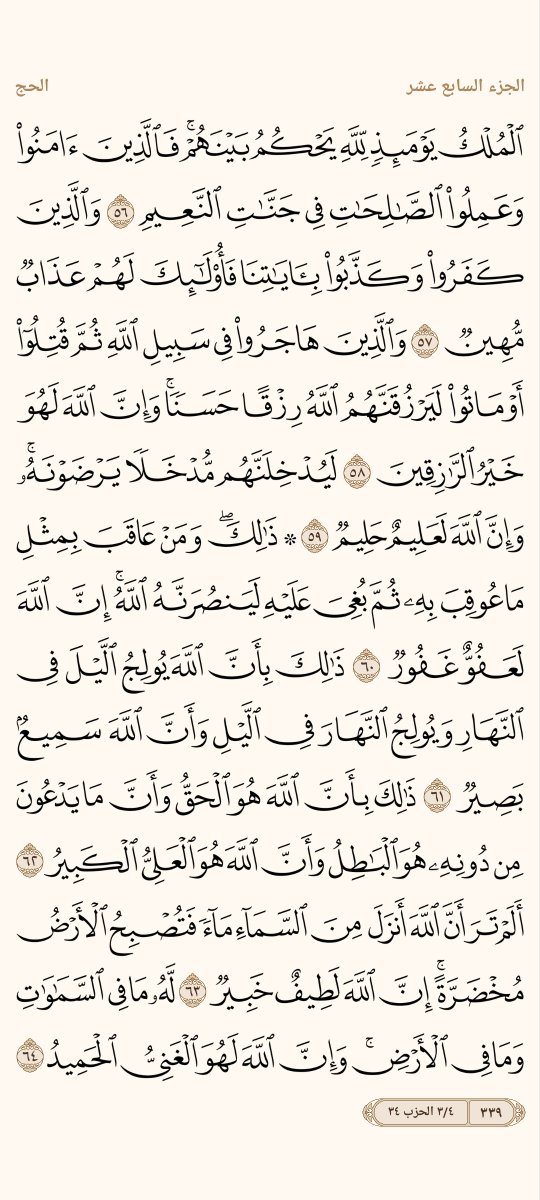 الجزء السابع عشر
الحج
ٱلۡمُلۡكُ يَوۡمَئِذٖ لِّلَّهِ يَحۡكُمُ بَيۡنَهُمۡۚ فَٱلَّذِينَ ءَامَنُواْ
وَعَمِلُواْ ٱلصَّٰلِحَٰتِ فِي جَنَّٰتِ ٱلنَّعِيمِ ٥٦ وَٱلَّذِينَ
كَفَرُواْ وَكَذَّبُواْ بِـَٔايَٰتِنَا فَأُوْلَٰٓئِكَ لَهُمۡ عَذَابٞ
مُّهِينٞ ٥٧ وَٱلَّذِينَ هَاجَرُواْ فِي سَبِيلِ ٱللَّهِ ثُمَّ قُتِلُوٓاْ
أَوۡ مَاتُواْ لَيَرۡزُقَنَّهُمُ ٱللَّهُ رِزۡقًا حَسَنٗاۚ وَإِنَّ ٱللَّهَ لَهُوَ
خَيۡرُ ٱلرَّٰزِقِينَ ٥٨ لَيُدۡخِلَنَّهُم مُّدۡخَلٗا يَرۡضَوۡنَهُۥۚ
وَإِنَّ ٱللَّهَ لَعَلِيمٌ حَلِيمٞ ٥٩ ۞ ذَٰلِكَۖ وَمَنۡ عَاقَبَ بِمِثۡلِ
مَا عُوقِبَ بِهِۦ ثُمَّ بُغِيَ عَلَيۡهِ لَيَنصُرَنَّهُ ٱللَّهُۚ إِنَّ ٱللَّهَ
لَعَفُوٌّ غَفُورٞ ٦٠ ذَٰلِكَ بِأَنَّ ٱللَّهَ يُولِجُ ٱلَّيۡلَ فِي
ٱلنَّهَارِ وَيُولِجُ ٱلنَّهَارَ فِي ٱلَّيۡلِ وَأَنَّ ٱللَّهَ سَمِيعُۢ
بَصِيرٞ ٦١ ذَٰلِكَ بِأَنَّ ٱللَّهَ هُوَ ٱلۡحَقُّ وَأَنَّ مَا يَدۡعُونَ
مِن دُونِهِۦ هُوَ ٱلۡبَٰطِلُ وَأَنَّ ٱللَّهَ هُوَ ٱلۡعَلِيُّ ٱلۡكَبِيرُ ٦٢
أَلَمۡ تَرَ أَنَّ ٱللَّهَ أَنزَلَ مِنَ ٱلسَّمَآءِ مَآءٗ فَتُصۡبِحُ ٱلۡأَرۡضُ
مُخۡضَرَّةًۚ إِنَّ ٱللَّهَ لَطِيفٌ خَبِيرٞ ٦٣ لَّهُۥ مَا فِي ٱلسَّمَٰوَٰتِ
وَمَا فِي ٱلۡأَرۡضِۚ وَإِنَّ ٱللَّهَ لَهُوَ ٱلۡغَنِيُّ ٱلۡحَمِيدُ ٦٤
٣٣٩ ٣/٤ الحزب ٣٤